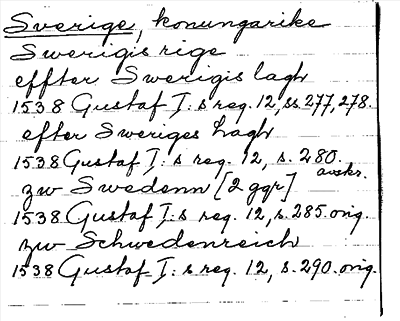 Sverige, konungarike
Swerigis rige
effter Swerigis lagh
1538 Gustaf I:s reg. 12, ss. 277, 278.
efter Sweriges Lagh
1538 Gustaf I:s reg. 12, s. 280.
avskr.
zw Swedenn [2 ggr]
1538 Gustaf I:s reg. 12, s. 285. orig.
zw Schwedenreich
1538 Gustaf I:s reg. 12, s. 290. orig.